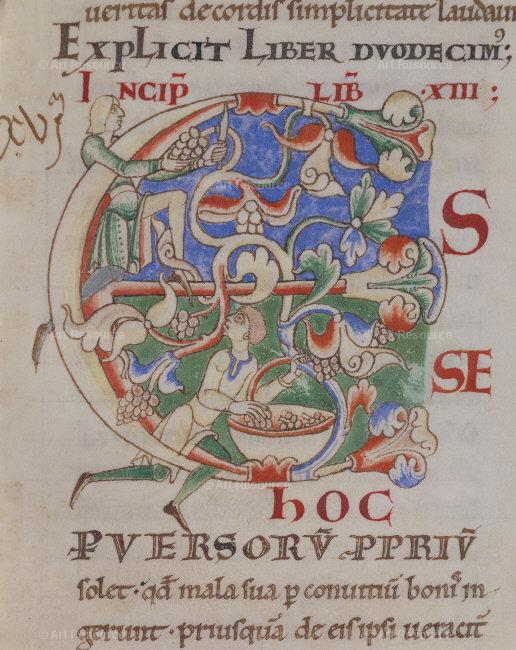 ueritas de cordis simplicitate laudaun
EXPLICIT LIBER DVODECIM⁹;
INCIP̄ LIB̄ ·XIII;
E
S
SE
hOC
PVERSORV̄ PPRIV̄
solet· qd̄ mala sua p conuitiū boniˢ in
gerunt· priusquā de eis ipsi ueracit̄
© Art Resource